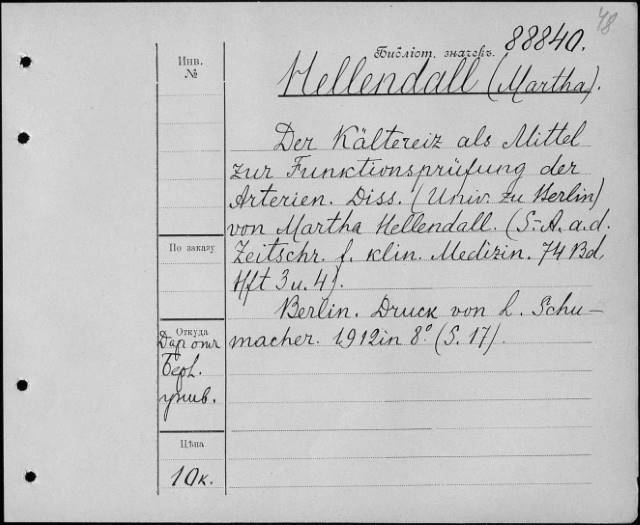 48
Библіот. значекъ. 88840.
Инв.
№
Hellendall (Martha).
Der Kältereiz als Mittel
zur Funktionsprüfung der
Arterien. Diss. (Univ. zu Berlin)
von Martha Hellendall. (S.-A. a. d.
Zeitschr. f. klin. Medizin. 74 Bd
Hft 3 u. 4).
Berlin. Druck von L. Schu-
macher. 1912 in 8° (S. 17).
По заказу
Откуда
Дар отъ
Берл.
унив.
Цѣна
10 к.